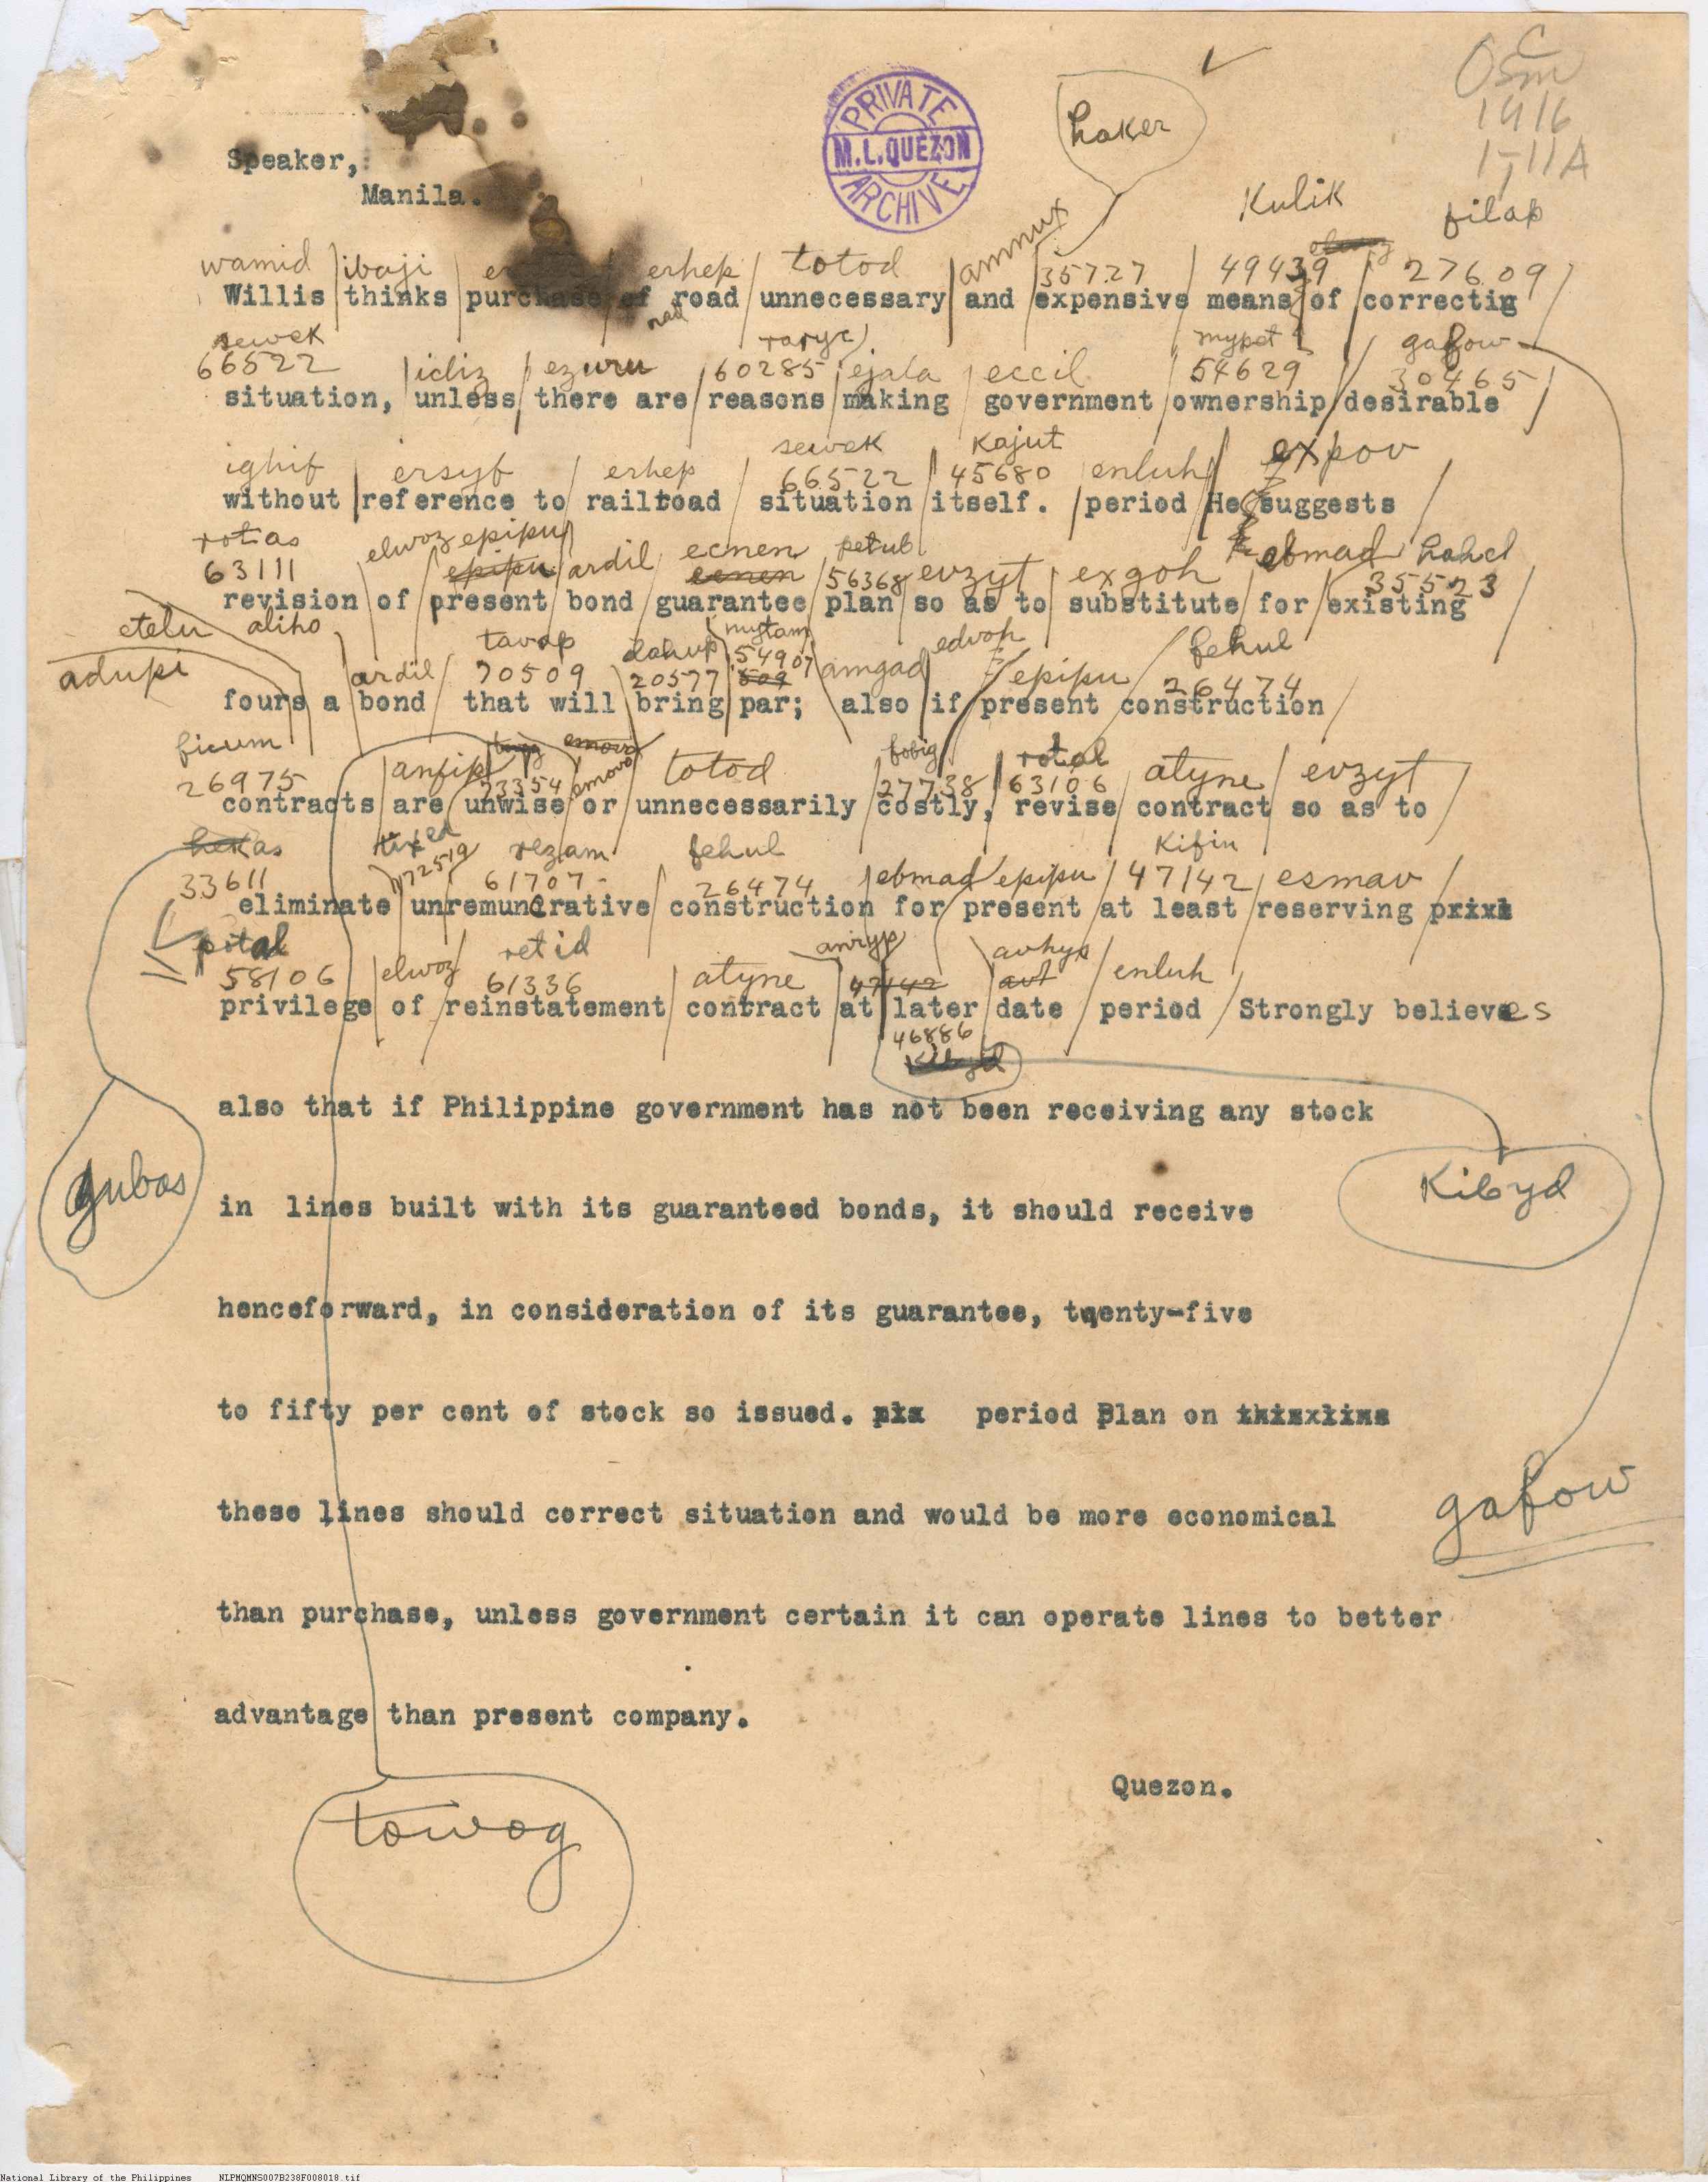 C
Osm
1916
I-11A
PRIVATE
M.L.QUEZON
ARCHIVE
haker
Speaker,
Manila.
Kulik filap
wamid ibaji erhep totod ammux 35727 49439 27609
Willis thinks purchase of road unnecessary and expensive means of correctig
sewek raryc mypet gafow
66522 icliz ezuru 60285 ejala eccil 54629 30465
situation, unless there are reasons making government ownership desirable
sewek Kajut expov
ighif ersyf erhep 66522 45680 enluh
without reference to railroad situation itself. period He suggests
rotias elwoz epipu ecnen petub ebmad hahel
63111 epipu ardil ecnen 56368 evzyt exgoh 35523
revision of present bond guarantee plan so as to substitute for existing
etelu aliho tavop dahup mytam edvoh fehul
adupi ardil 70509 20577 54907 amgad epipu 26474
fours a bond that will bring par; also if present construction
ficum emovo fobig rotal
26975 anfip 23354 emovo totod 27738 63106 atyne evzyt
contracts are unwise or unnecessarily costly, revise contract so as to
hekas tixed rezam fehul Kifin
33611 72519 61707 26474 ebmad epipu 47142 esmav
eliminate unremunerative construction for present at least reserving prixl
pital retid anryp avhys
58106 elwoz 61336 atyne 47142 avt enluh
privilege of reinstatement contract at later date period Strongly believes
46886
Kibyd
also that if Philippine government has not been receiving any stock
gubas
Kibyd
in lines built with its guaranteed bonds, it should receive
henceforward, in consideration of its guarantee, twenty-five
to fifty per cent of stock so issued. period Plan on
these lines should correct situation and would be more economical
gafow
than purchase, unless government certain it can operate lines to better
advantage than present company.
Quezon.
towog
National Library of the Philippines NLPMQMNS007B238F008018.tif